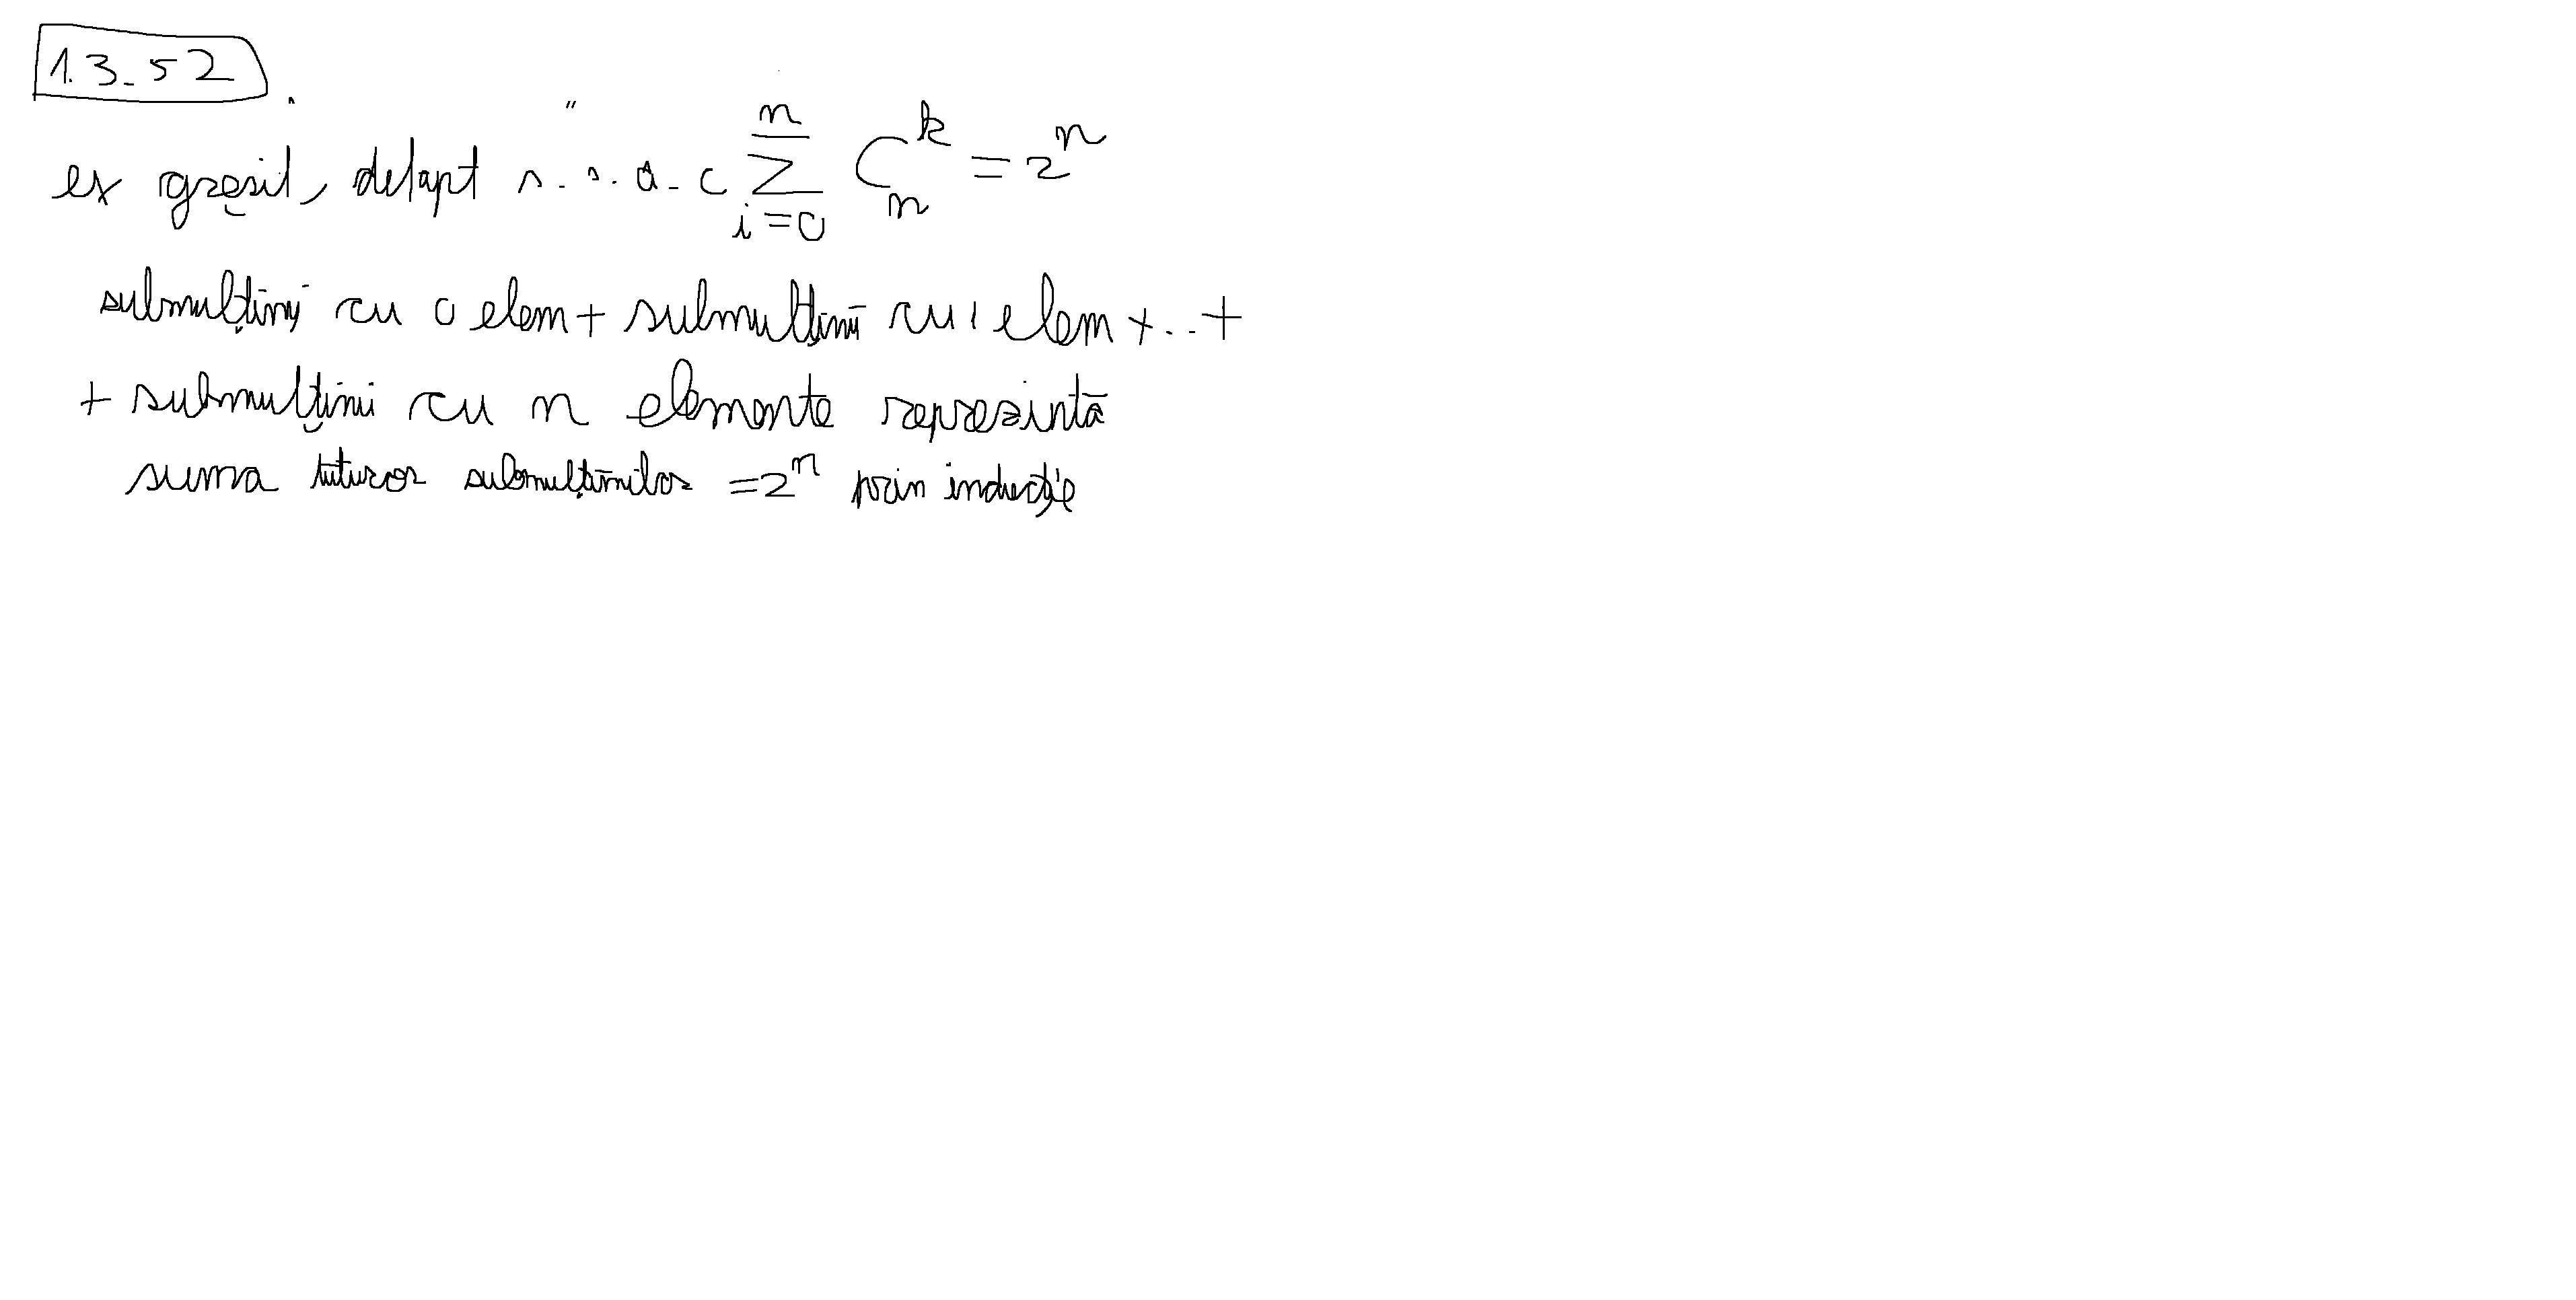 1.3.52
ex greșit, defapt s.s.a.c \sum_{i=0}^{n} C_n^k = 2^n
submulțimi cu 0 elem + submulțimi cu 1 elem + ... +
+ submulțimi cu n elemente reprezintă
suma tuturor submulțimilor = 2^n prin inducție